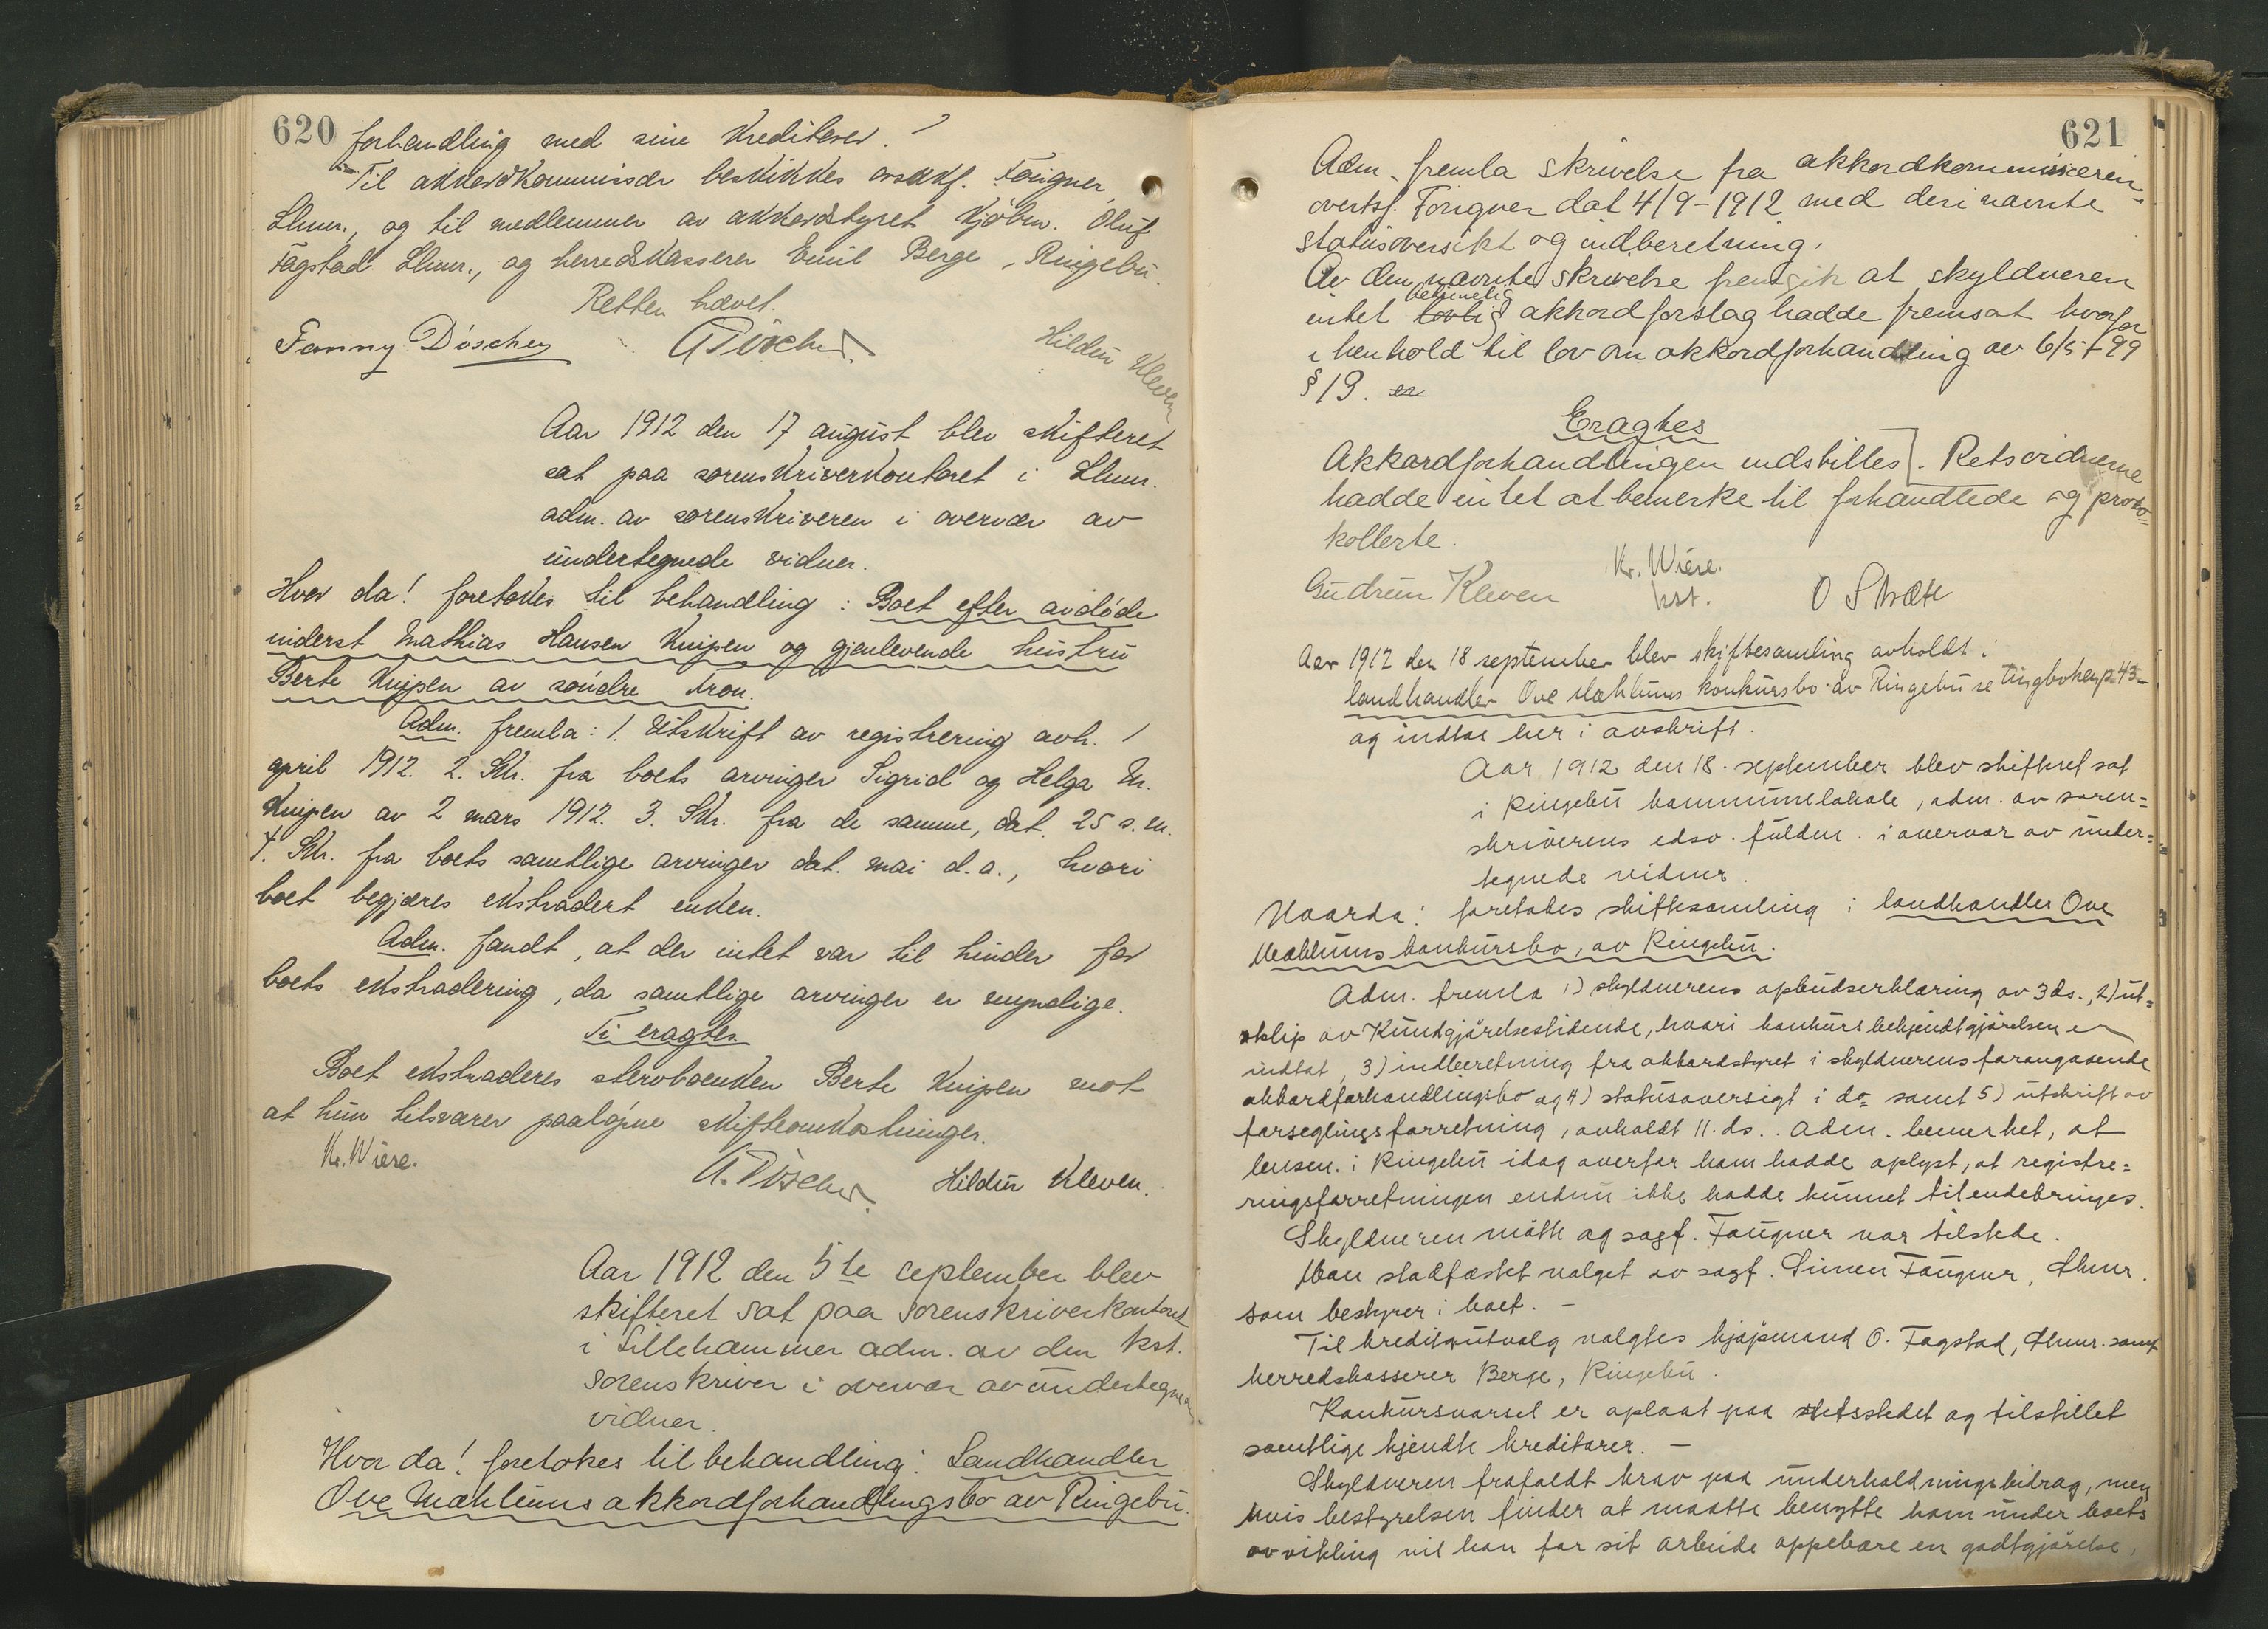 620
forhandling med sine Kreditorer.
Til akkordkommissær beskikkes orsakf. Fougner,
Lhmr., og til medlemmer av akkordstyret kjøbm. Oluf
Fagstad Lhmr., og herredskasserer Emil Berge, Ringebu.
Retten hævet.
Fanny Döscher ADöscher Hildur Kleven
Aar 1912 den 17 august blev skifteret
sat paa sorenskriverkontoret i Lhmr.
adm. av sorenskriveren i overvær av
undertegnede vidner.
Hvor da! foretokes til behandling: Boet efter avdöde
inderst Mathias Hansen Knipen og gjenlevende hustru
Berte Knipen av söndre Fron.
Adm. fremla: 1. Utskrift av registrering avh. 1
april 1912. 2. Skr. fra boets arvinger Sigrid og Helga M.
Knipen av 2 mars 1912. 3. Skr. fra de samme, dat. 25 s.m.
4. Skr. fra boets samtlige arvinger dat. mai d.a., hvori
boet begjæres ekstradert enken.
Adm. fandt, at der intet var til hinder for
boets ekstradering, da samtlige arvinger er myndige.
Ti eragtes
Boet ekstraderes stervboenken Berte Knipen mot
at hun tilsvarer paaløpne skifteomkostninger.
Kr. Wiese. A. Döscher Hildur Kleven.
Aar 1912 den 5te september blev
skifteret sat paa sorenskriverkontoret
i Lillehammer adm. av den kst.
sorenskriver i overvær av undertegnede
vidner.
Hvor da! foretokes til behandling: Landhandler
Ove Mæhlums akkordforhandlingsbo av Ringebu.
621
Adm. fremla skrivelse fra akkordkommissæren
overtsf. Fougner dat 4/9-1912 med deri nævnte
statusoversikt og indberetning.
Av den nævnte skrivelse fremgik at skyldneren
betimelig
intet lovlig akkordforslag hadde fremsat hvorfor
i henhold til lov om akkordforhandling av 6/5-99
§19. er
Eragtes
Akkordforhandlingen indstilles. Retsvidnerne
hadde intet at bemerke til forhandlede og proto=
kollerte.
Gudrun Kleven Kr. Wiese. kst. O Stræte
Aar 1912 den 18 september blev skiftesamling avholdt i
landhandler Ove Mæhlums konkursbo av Ringebu se tingboken p. 43
og indtas her i avskrift.
Aar 1912 den 18. september blev skifteret sat
i Ringebu kommunelokale, adm. av soren=
skriverens edsv. fuldm. i overvær av under=
tegnede vidner.
Hvorda! foretokes skiftesamling i landhandler Ove
Mæhlums konkursbo, av Ringebu.
Adm. fremla 1) skyldnerens opbudserklæring av 3 ds., 2) ut=
klip av Kundgjörelsestidende, hvori konkursbekjendtgjörelsen er
indtat, 3) indberetning fra akkordstyret i skyldnerens forangaaende
akkordforhandlingsbo og 4) statusoversigt i do samt 5) utskrift av
forseglingsforretning, avholdt 11. ds.. Adm. bemerket, at
lensm. i Ringebu idag overfor ham hadde oplyst, at registre=
ringsforretningen endnu ikke hadde kunnet tilendebringes.
Skyldneren mötte og sagf. Fougner var tilstede.
Man stadfæstet valget av sagf. Simen Fougner, Lhmr.
som bestyrer i boet. -
Til kreditorutvalg valgtes kjøpmand O. Fagstad, Lhmr. samt
herredskasserer Berge, Ringebu.
Konkursvarsel er oplaat paa retsstedet og tilstillet
samtlige kjendte kreditorer. -
Skyldneren frafaldt krav paa underholdningsbidrag, men
hvis bestyrelsen finder at maatte benytte ham under boets
avvikling vil han for sit arbeide oppebære en godtgjörelse,